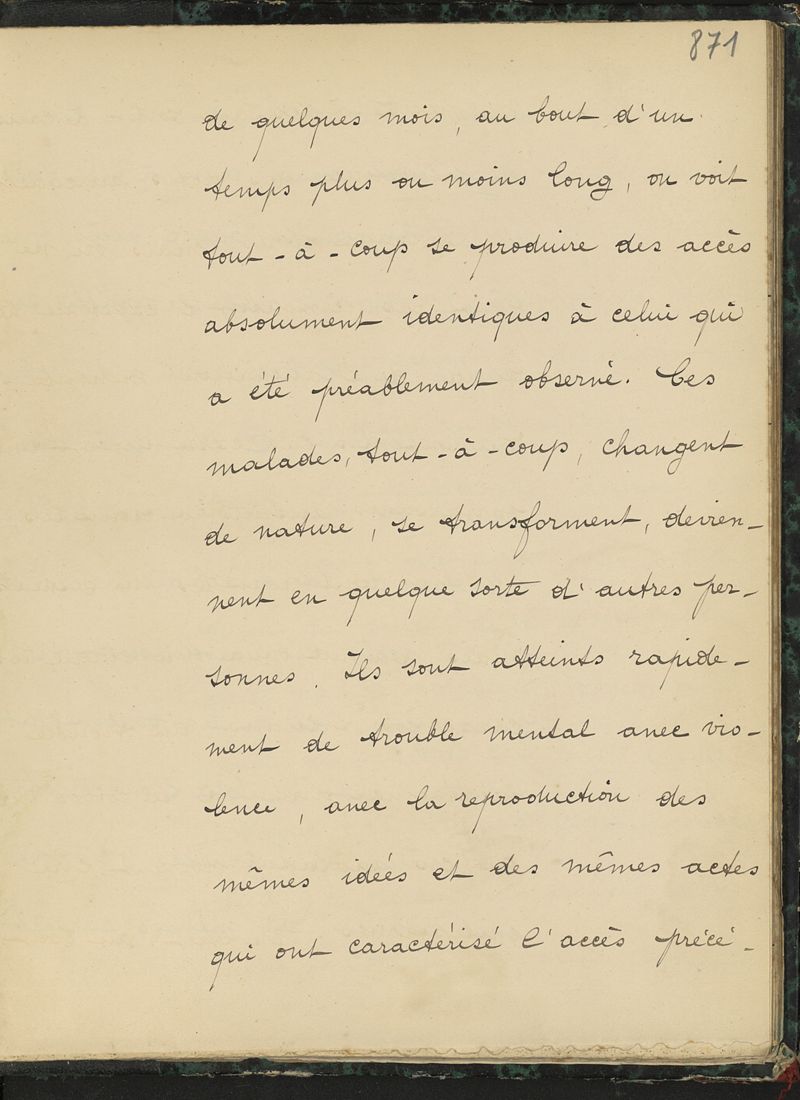 871
de quelques mois, au bout d'un
temps plus ou moins long, on voit
tout-à-coup se produire des accès
absolument identiques à celui qui
a été préablement observé. Ces
malades, tout-à-coup, changent
de nature, se transforment, devien-
nent en quelque sorte d'autres per-
sonnes. Ils sont atteints rapide-
ment de trouble mental avec vio-
lence, avec la reproduction des
mêmes idées et des mêmes actes
qui ont caractérisé l'accès précé-